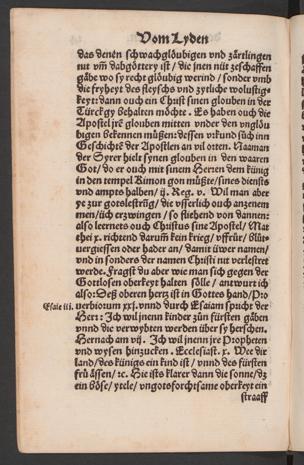 Vom Lyden
das denen schwachglöubigen vnd zärtlingen
nit vm̄ dabgöttery ist / die jnen nüt zeschaffen
gäbe wo sy recht glöubig werind / sonder vmb
die fryheyt des fleyschs vnd zytliche wolustig-
keyt: dann ouch ein Christ sinen glouben in der
Türckgy behalten möchte. Es haben ouch die
Apostel jrē glouben mitten vnder den vnglöu
bigen bekennen müßen: dessen vrkund süch inn
Geschichtē der Apostlen an vil orten. Naaman
der Syrer hielt synen glouben in den waaren
Got / do er ouch mit sinem Herren dem künig
in den tempel Rimon gon müßte / sines diensts
vnd ampts halben / ij. Reg. v. Wil man aber
ye zur gotslestrüg / die vsserlich ouch anzenem
men / üch erzwingen / so fliehend von dannen:
also lernets ouch Christus sine Apostel / Mat
thei x. richtend darum̄ kein krieg / vffrür / blüt-
uergiessen oder hader an / damit üwer namen /
vnd in sonders der namen Christi nit verlestret
werde. Fragst du aber wie man sich gegen der
Gottlosen oberkeyt halten sölle / antwurt ich
also: Seß oberen hertz ist in Gottes hand / Pro
Esaie iii. uerbiorum xxj. vnnd durch Esaiam spricht der
Herr: Ich wil jnenn kinder zün fürsten gäben
vnnd die verwybten werden über sy herschen.
Hernach am vij. Ich wil jnenn jre Propheten
vnd wysen hinzucken. Ecclesiast. x. Wee dir
land / des künigs ein kind ist / vnnd des fürsten
frü ässen / ꝛc. Hie ists klarer dann die sonne / dz
ein böse / ytele / vngotsforchtsame oberkeyt ein
straaff